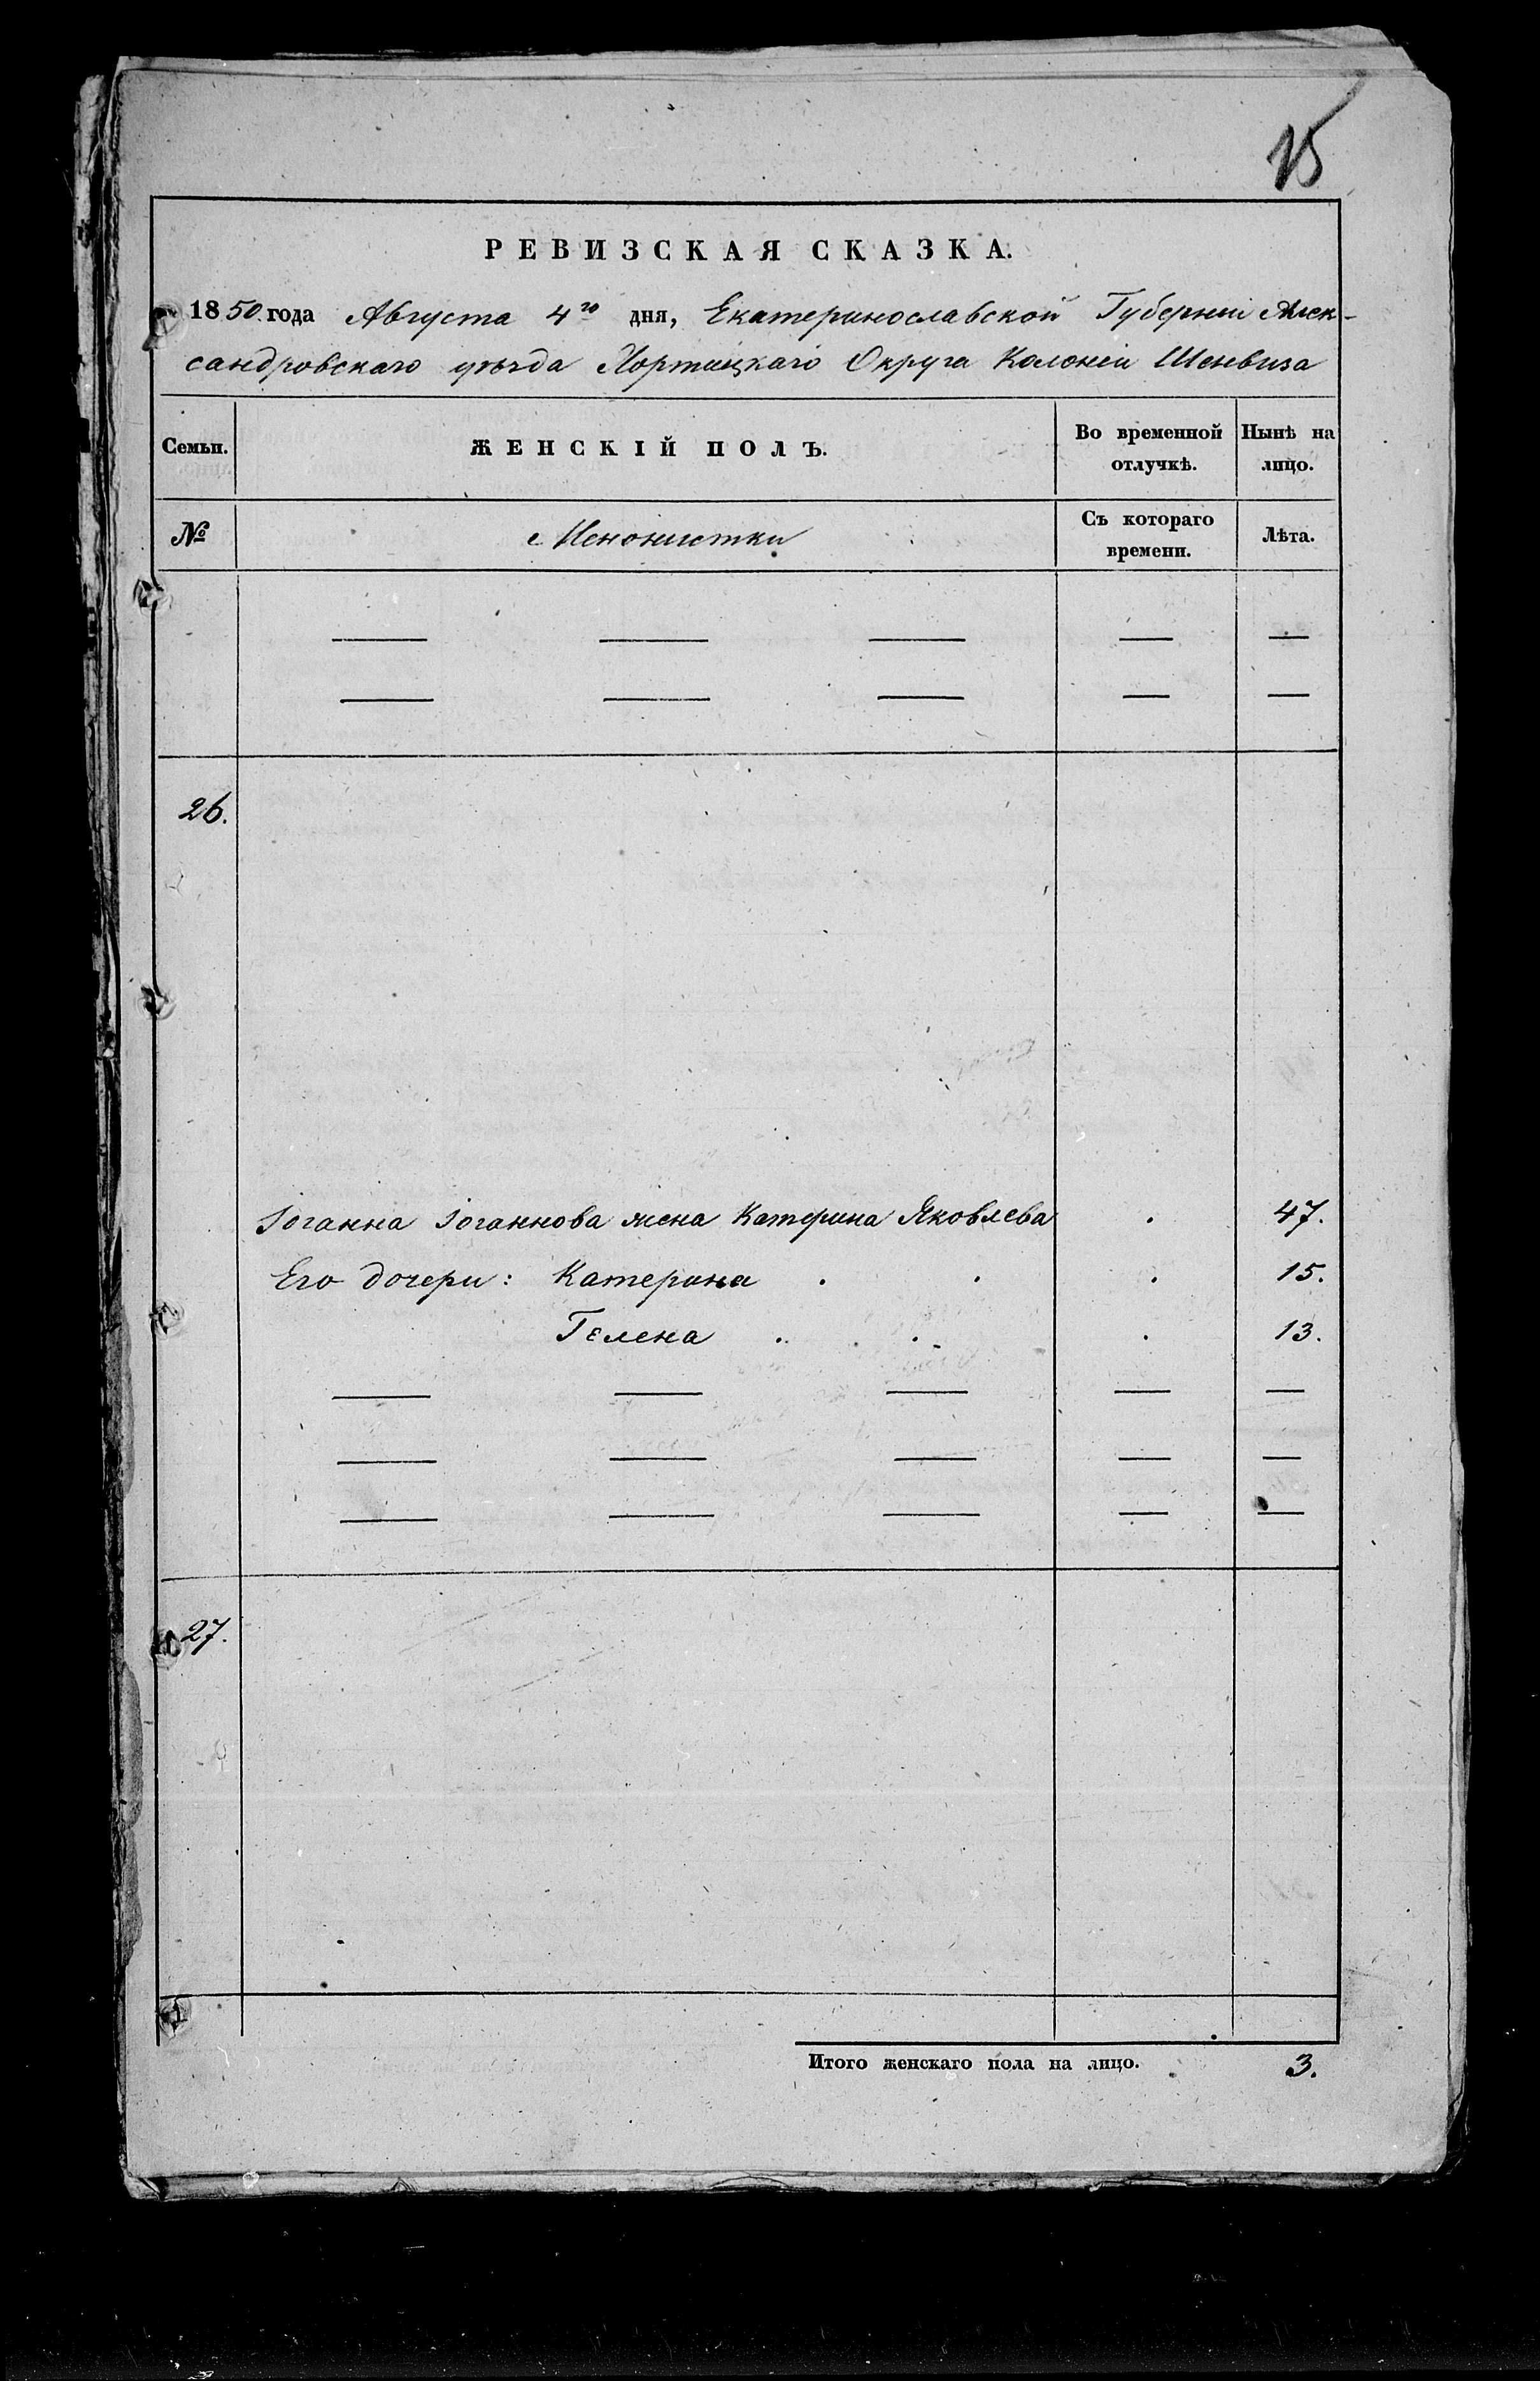 15
РЕВИЗСКАЯ СКАЗКА.
1850 года Августа 4го дня, Екатеринославской Губернии Алек-
сандровскаго уѣзда Хортицкаго Округа Колоніи Шенвиза
Семьи. ЖЕНСКІЙ ПОЛЪ. Во временной отлучкѣ. Нынѣ на лицо.
№ Менонистки Съ котораго времени. Лѣта.
— — — — —
— — — — —
26.
Іоганна Іоганнова жена Катерина Яковлева . 47.
Его дочери: Катерина . . . 15.
Гелена . . . 13.
— — — — —
— — — — —
— — — — —
27.
Итого женскаго пола на лицо. 3.